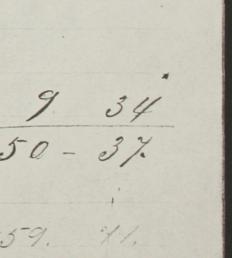 9 34
50 - 37.
59. 41.